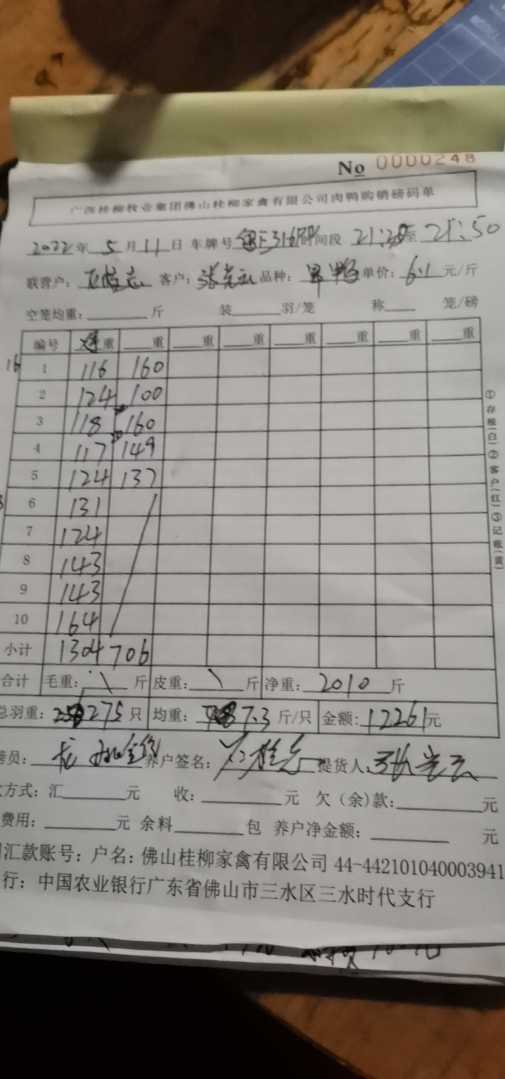 No 0000248
广西桂柳牧业集团佛山桂柳家禽有限公司肉鸭购销磅码单
2022年 5月 11日 车牌号 时间段 21:20至 21:50
联营户: 客户: 张光云 品种: 单价: 6.1 元/斤
空笼均重: 斤 装 羽/笼 称 笼/磅
编号 重 重 重 重 重 重 重 重
1 116 160
2 124 100
3 118 160
4 117 149
5 124 137
6 131
7 124
8 143
9 143
10 164
小计 1304 706
合计 毛重: 斤 皮重: 斤 净重: 2010 斤
总羽重: 275 只 均重: 7.3 斤/只 金额: 12261元
磅员: 养户签名: 提货人: 张光云
方式: 汇 元 收: 元 欠(余)款: 元
费用: 元 余料 包 养户净金额: 元
汇款账号: 户名: 佛山桂柳家禽有限公司 44-442101040003941
行: 中国农业银行广东省佛山市三水区三水时代支行
①存根(白)②客户(红)③记账(黄)